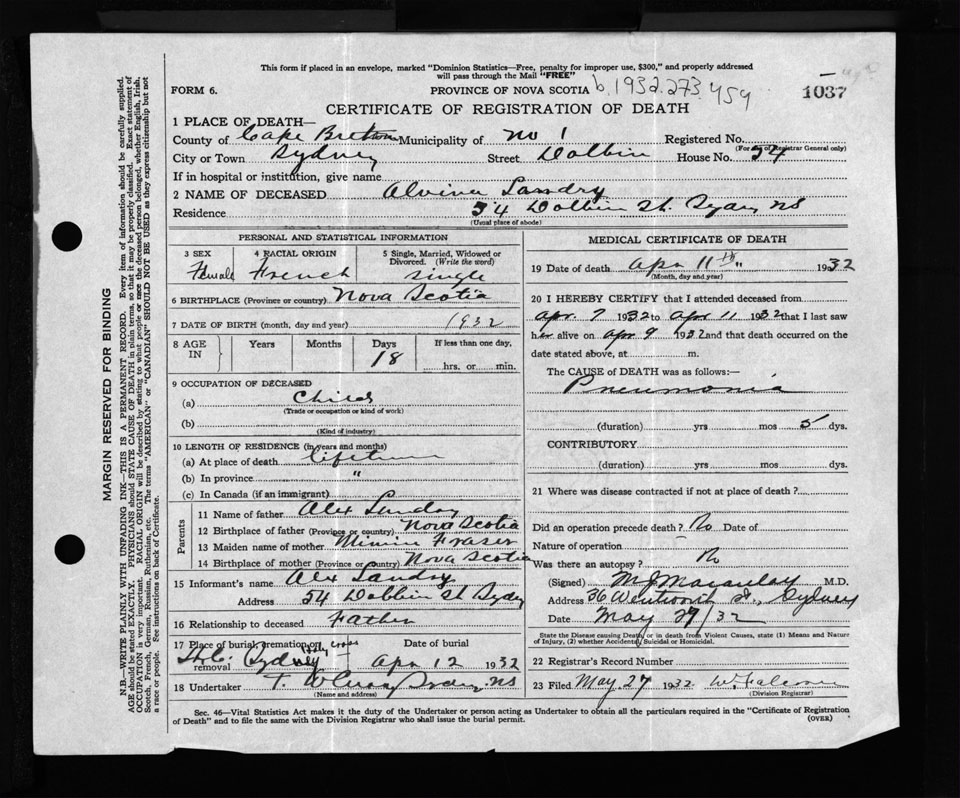 This form if placed in an envelope, marked "Dominion Statistics—Free, penalty for improper use, $300," and properly addressed
will pass through the Mail "FREE"
FORM 6. PROVINCE OF NOVA SCOTIA b. 1932.273.459 1037
CERTIFICATE OF REGISTRATION OF DEATH
1 PLACE OF DEATH—
County of Cape Breton Municipality of No 1 Registered No.
(For use of Registrar General only)
City or Town Sydney Street Dobbin House No. 54
If in hospital or institution, give name
2 NAME OF DECEASED Alvina Landry
Residence 54 Dobbin St. Sydney NS
(Usual place of abode)
PERSONAL AND STATISTICAL INFORMATION
3 SEX 4 RACIAL ORIGIN 5 Single, Married, Widowed or Divorced. (Write the word)
Female French Single
6 BIRTHPLACE (Province or country) Nova Scotia
7 DATE OF BIRTH (month, day and year) 1932
8 AGE IN Years Months Days If less than one day,
18 hrs. or min.
9 OCCUPATION OF DECEASED
(a) Child
(Trade or occupation or kind of work)
(b)
(Kind of industry)
10 LENGTH OF RESIDENCE (in years and months)
(a) At place of death lifetime
(b) In province "
(c) In Canada (if an immigrant)
Parents
11 Name of father Alex Landry
12 Birthplace of father (Province or country) Nova Scotia
13 Maiden name of mother Minnie Fraser
14 Birthplace of mother (Province or country) Nova Scotia
15 Informant's name Alex Landry
Address 54 Dobbin St Sydney
16 Relationship to deceased Father
17 Place of burial, cremation or removal Date of burial
Holy Cross Sydney Apr 12 1932
18 Undertaker T. W Curry Sydney NS
(Name and address)
MEDICAL CERTIFICATE OF DEATH
19 Date of death Apr 11th " 1932
(Month, day and year)
20 I HEREBY CERTIFY that I attended deceased from
Apr. 7 1932 to Apr 11 1932 that I last saw
her alive on Apr 9 1932 and that death occurred on the
date stated above, at m.
The CAUSE of DEATH was as follows:—
Pneumonia
(duration) yrs mos 5 dys.
CONTRIBUTORY
(duration) yrs mos dys.
21 Where was disease contracted if not at place of death?
Did an operation precede death? No Date of
Nature of operation
Was there an autopsy? No
(Signed) M J Macaulay M.D.
Address 36 Wentworth St., Sydney
Date May 27/32
State the Disease causing Death, or in death from Violent Causes, state (1) Means and Nature
of Injury, (2) whether Accidental, Suicidal or Homicidal.
22 Registrar's Record Number
23 Filed May 27 1932 W. Falconer
(Division Registrar)
Sec. 46—Vital Statistics Act makes it the duty of the Undertaker or person acting as Undertaker to obtain all the particulars required in the "Certificate of Registration
of Death" and to file the same with the Division Registrar who shall issue the burial permit. (OVER)
MARGIN RESERVED FOR BINDING
N.B.—WRITE PLAINLY WITH UNFADING INK—THIS IS A PERMANENT RECORD. Every item of information should be carefully supplied.
AGE should be stated EXACTLY. PHYSICIANS should STATE CAUSE OF DEATH in plain terms, so that it may be properly classified. Exact statement of
OCCUPATION is very important. RACIAL ORIGIN will be described by stating to what people or race the deceased person belonged, whether English, Irish,
Scotch, French, German, Russian, Ruthenian, etc. The terms "AMERICAN" or "CANADIAN" SHOULD NOT BE USED as they express citizenship but not
a race or people. See instructions on back of Certificate.